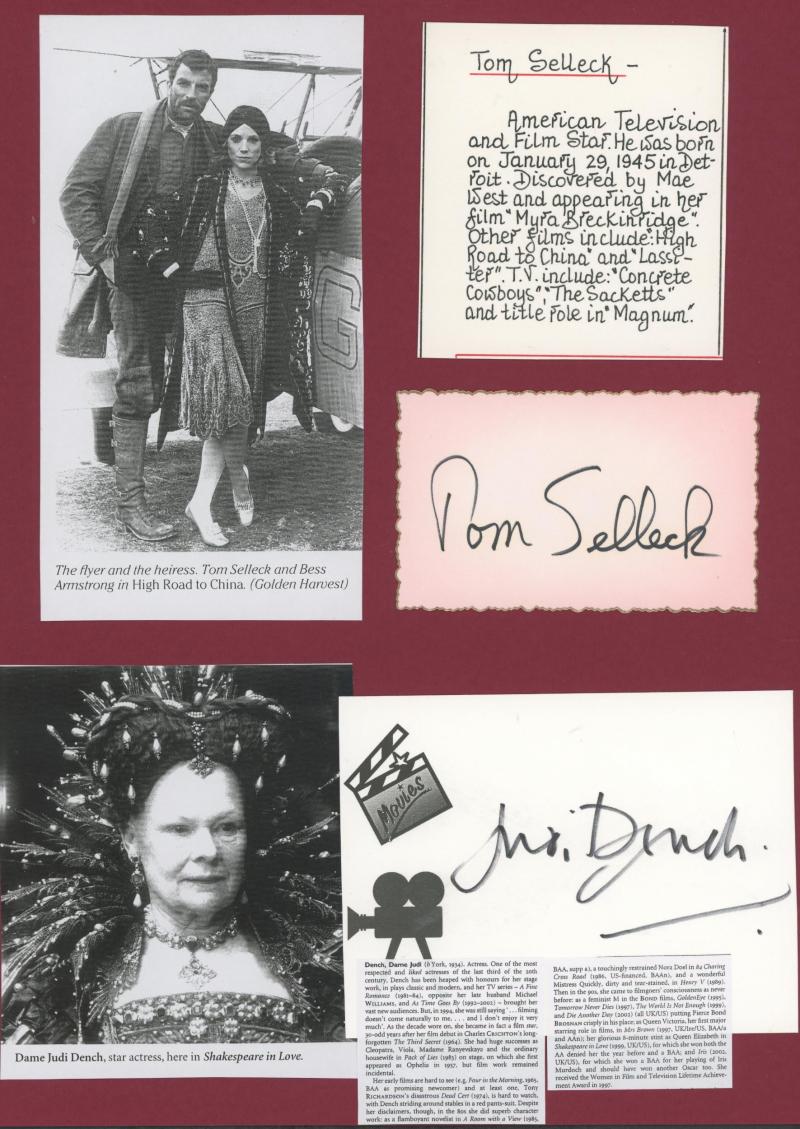 The flyer and the heiress. Tom Selleck and Bess
Armstrong in High Road to China. (Golden Harvest)
Tom Selleck –
American Television
and Film Star. He was born
on January 29, 1945 in Det-
roit. Discovered by Mae
West and appearing in her
film "Myra Breckinridge".
Other films include: "High
Road to China" and "Lassi-
ter". T.V. include: "Concrete
Cowboys", "The Sacketts"
and title role in "Magnum".
Tom Selleck
G
Dame Judi Dench, star actress, here in Shakespeare in Love.
Movies
Judi Dench.
Dench, Dame Judi (b York, 1934). Actress. One of the most
respected and liked actresses of the last third of the 20th
century, Dench has been heaped with honours for her stage
work, in plays classic and modern, and her TV series – A Fine
Romance (1981–84), opposite her late husband Michael
WILLIAMS, and As Time Goes By (1992–2002) – brought her
vast new audiences. But, in 1994, she was still saying '. . . filming
doesn't come naturally to me, . . . and I don't enjoy it very
much'. As the decade wore on, she became in fact a film star,
30-odd years after her film debut in Charles CRICHTON's long-
forgotten The Third Secret (1964). She had huge successes as
Cleopatra, Viola, Madame Ranyevskaya and the ordinary
housewife in Pack of Lies (1983) on stage, on which she first
appeared as Ophelia in 1957, but film work remained
incidental.
Her early films are hard to see (e.g. Four in the Morning, 1965,
BAA as promising newcomer) and at least one, Tony
RICHARDSON's disastrous Dead Cert (1974), is hard to watch,
with Dench striding around stables in a red pants-suit. Despite
her disclaimers, though, in the 80s she did superb character
work: as a flamboyant novelist in A Room with a View (1985,
BAA, supp a), a touchingly restrained Nora Doel in 84 Charing
Cross Road (1986, US-financed, BAAn), and a wonderful
Mistress Quickly, dirty and tear-stained, in Henry V (1989).
Then in the 90s, she came to filmgoers' consciousness as never
before: as a feminist M in the BOND films, GoldenEye (1995),
Tomorrow Never Dies (1997), The World Is Not Enough (1999),
and Die Another Day (2002) (all UK/US) putting Pierce Bond
BROSNAN crisply in his place; as Queen Victoria, her first major
starring role in films, in Mrs Brown (1997, UK/Ire/US, BAA/a
and AAn); her glorious 8-minute stint as Queen Elizabeth in
Shakespeare in Love (1999, UK/US), for which she won both the
AA denied her the year before and a BAA; and Iris (2002,
UK/US), for which she won a BAA for her playing of Iris
Murdoch and should have won another Oscar too. She
received the Women in Film and Television Lifetime Achieve-
ment Award in 1997.